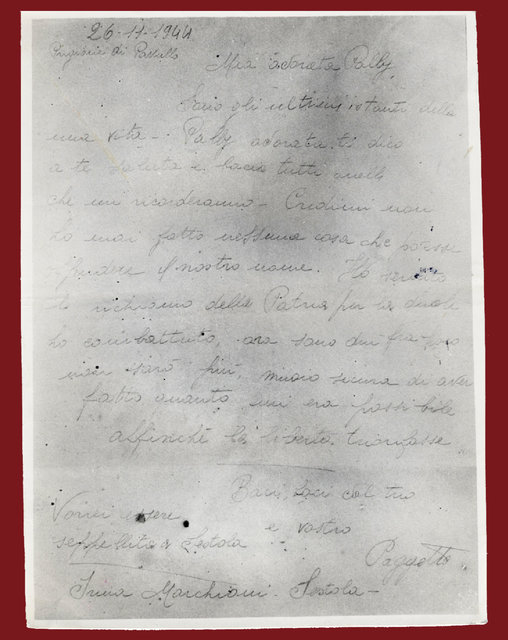 26-11-1944
Prigioni di Pavullo
Mia adorata Pally,
Sono gli ultimi istanti della
mia vita - Pally adorata ti dico
a te saluta e bacia tutti quelli
che mi ricorderanno - Credimi non
ho mai fatto nessuna cosa che potesse
offendere il nostro nome. Ho sentito
il richiamo della Patria per la quale
ho combattuto, ora sono qui fra poco
non sarò più, muoio sicura di aver
fatto quanto mi era possibile
affinché la libertà trionfasse
Baci, baci dal tuo
e vostro
Paggetto
Vorrei essere
seppellita a Sestola
Irma Marchiani. Sestola -